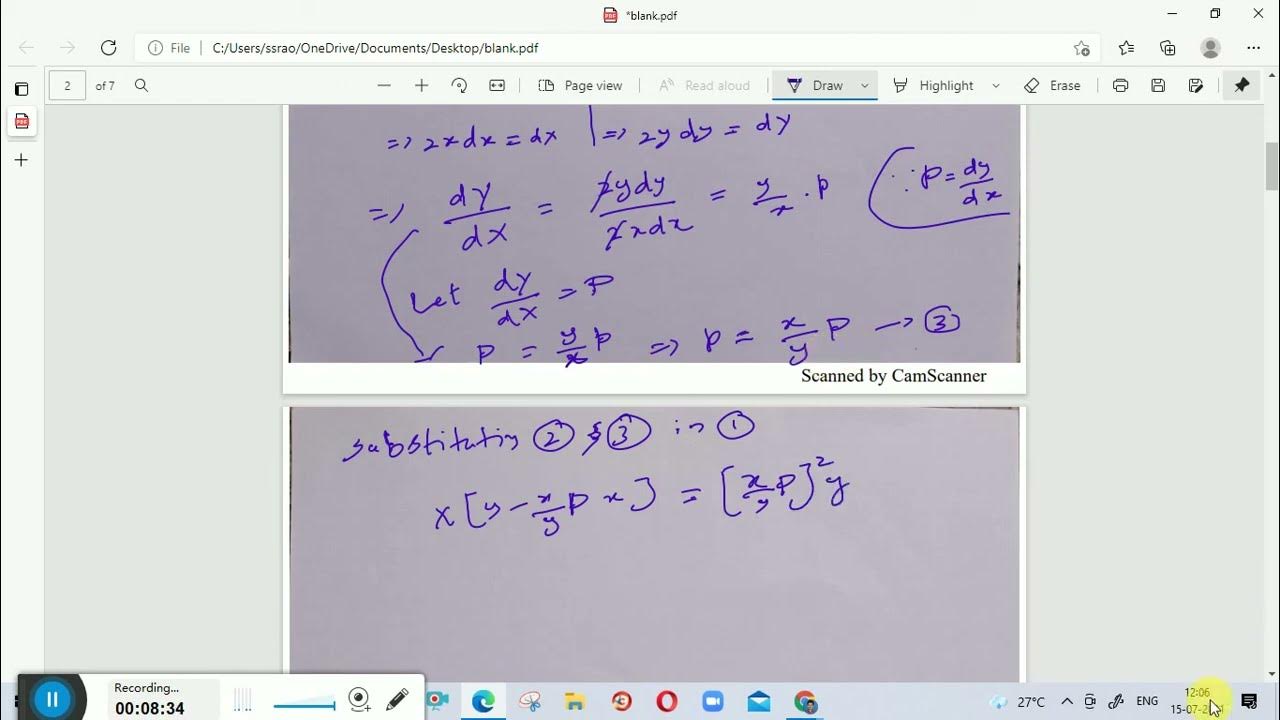 *blank.pdf
File | C:/Users/ssrao/OneDrive/Documents/Desktop/blank.pdf
2 of 7 Page view Read aloud Draw Highlight Erase
=> 2xdx = dX | => 2y dy = dY
=> dY/dX = 2ydy/2xdx = y/x . p (∵ p = dy/dx
Let dY/dX = P
P = y/x p => p = x/y P → ③
Scanned by CamScanner
substituting ② & ③ in ①
x[y - x/y P x] = [x/y P]² y
Recording...
00:08:34
27°C ENG 12:06